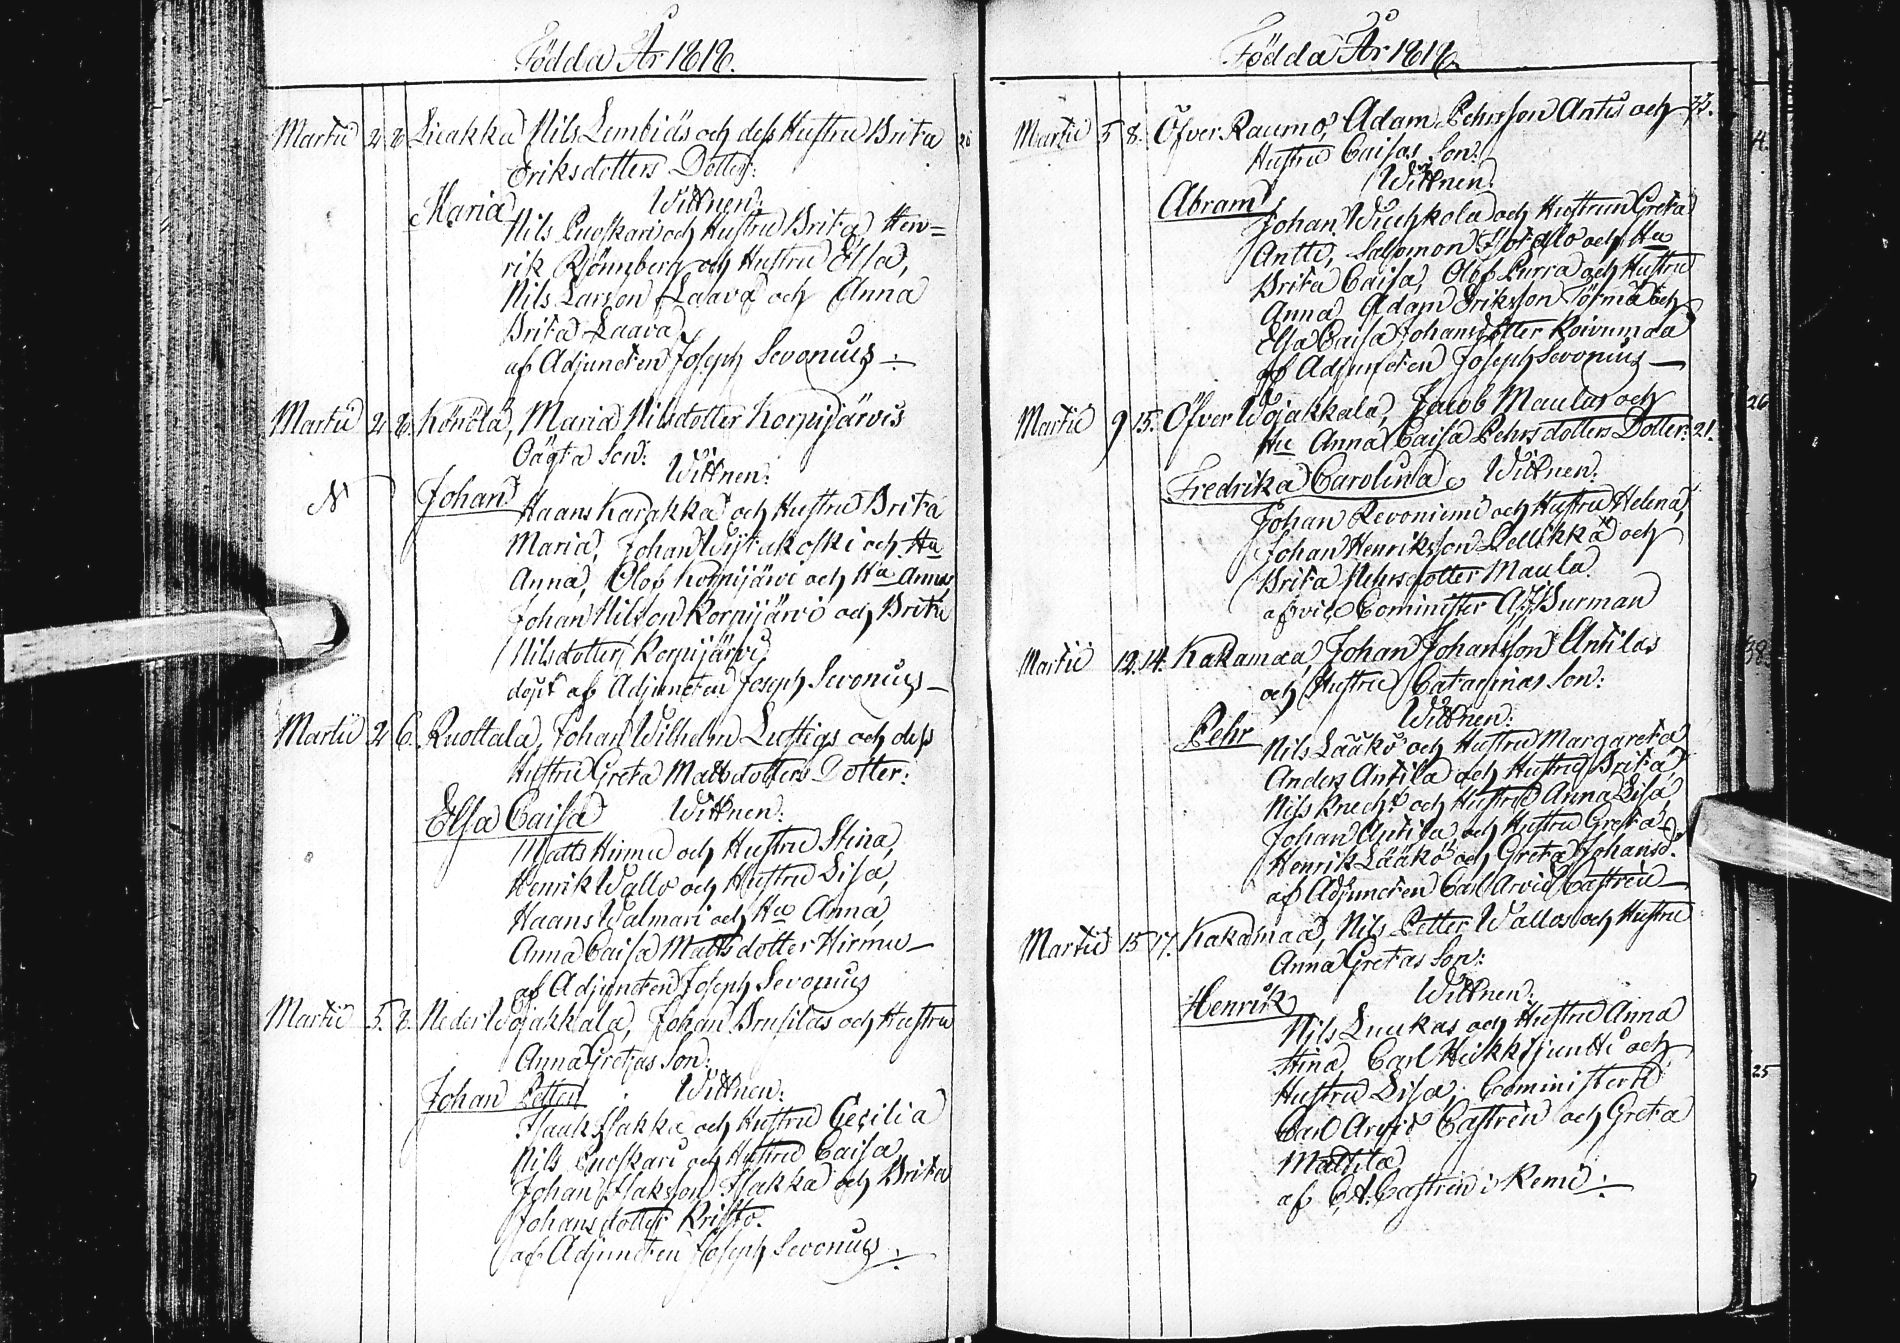 Födda År 1818.
Martii 2 6 Liakka Nils Lembiäs och dess Hustru Brita 26
Eriksdotters Dotter:
Maria Wittnen:
Nils Puoskari och Hustru Brita, Hen=
rik Rönnberg och Hustru Elsa,
Nils Larsson Laava och Anna
Brita Laava
af Adjuncten Joseph Sevonius
Martii 2 6. Könölä, Maria Nilsdotter Korpijärvis
Oägta Son:
Wittnen:
N Johan
Haans Karakka och Hustru Brita
Maria, Johan Wijtakoski och Hu
Anna, Olof Korpijärvi och Hu Anna
Johan Nilsson Korpijärvi och Brita
Nilsdotter Korpijärvi
döpt af Adjuncten Joseph Sevonius
Martii 2 6. Ruottala, Johan Wilhelm Lustigs och dess
Hustru Greta Mattsdotters Dotter:
Elsa Caisa Wittnen:
Matts Hirmu och Hustru Stina,
Henrik Wallo och Hustru Lisa,
Haans Walmari och Hu Anna,
Anna Caisa Mattsdotter Hirmu
af Adjuncten Joseph Sevonius
Martii 5. 8. Neder Wojakkala, Johan Brusilas och Hustru
Anna Gretas Son:
Johan Petter Wittnen:
Isak Isakka och Hustru Cecilia
Nils Puoskari och Hustru Caisa
Johan Isaksson Isakka och Brita
Johansdotter Kristo.
af Adjuncten Joseph Sevonius
Födda År 1818.
Martii 5 8. Öfver Raumo, Adam Pehrsson Antis och 33.
Hustru Caisas Son:
Wittnen:
Abram
Johan Wuopkola och Hustrun Greta
Antti, Salomon och Hu
Brita Caisa, Olof Purra och Hustru
Anna Adam Eriksson Törmä och
Elsa Caisa Johansdotter Koivumaa
af Adjuncten Joseph Sevonius
Martii 9 15. Öfver Wojakkala, Jacob Maulas och
Hu Anna Caisa Pehrsdotters Dotter: 21.
Fredrika Carolina Wittnen:
Johan Revoniemi och Hustru Helena,
Johan Henriksson Pellikka och
Brita Pehrsdotter Maula
af vice Cominister A J Burman
Martii 12. 14. Kakamaa Johan Johansson Antilas
och Hustru Catarinas Son:
Wittnen:
Pehr
Nils Lääkö och Hustru Margareta
Anders Antila och Hustru Brita,
Nils Knecht och Hustru Anna Lisa
Johan Antila och Hustru Greta,
Henrik Lääkö och Greta Johansd.
af Adjuncten Carl Arvid Castrén
Martii 15 17. Kakamaa, Nils Petter Wallos och Hustru
Anna Gretas Son:
Wittnen:
Henrik
Nils Luukas och Hustru Anna
Stina, Carl Heikki juntti och
Hustru Lisa, Cominister
Carl Arvid Castrén och Greta
Mattila
af C. A. Castrén i Kemi
4.
26
38
25